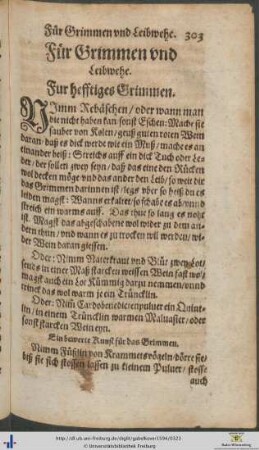 Für Grimmen vnd Leibwehe. 303
Für Grimmen vnd
Leibwehe.
Fur hefftiges Grimmen.
NImm Rebäschen / oder wann man
die nicht haben kan / sonst Eschen: Mache sie
sauber von Kolen / geuß guten roten Wein
daran / daß es dick werde wie ein Muß / mache es an
einander heiß: Streichs auff ein dick Tuch oder Le
der / der sollen zwey seyn / daß das eine den Rücken
wol decken möge vnd das ander den Leib / so weit die
das Grimmen darinnen ist / legs vber so heiß du es
leiden magst: Wann es erkaltet / so schabe es ab / vnnd
streich ein warms auff. Das thu so lang es noht
ist. Magst das abgeschabene wol wider zu dem an
dern thun / vnd wann es zu trocken wil werden / wi
der Wein daran giessen.
Oder: Nimm
in einer Maß starcken weissen Wein fast wol /
magst auch ein Lot Kümmig darzu nemmen / vnnd
trinck das wol warm je ein Trüncklin.
Oder: Nim Cardobenedictenpuluer ein Quint-
lin / in einem Trüncklin warmen Maluasier / oder
sonst starcken Wein eyn.
Ein bewerte Kunst für das Grimmen.
Nimm Füßlin von Krammetsvögeln / dörre sie /
biß sie sich stossen lassen zu kleinem Puluer / stosse
auch
http://dl.ub.uni-freiburg.de/diglit/gabelkover1594/0323
© Universitätsbibliothek Freiburg